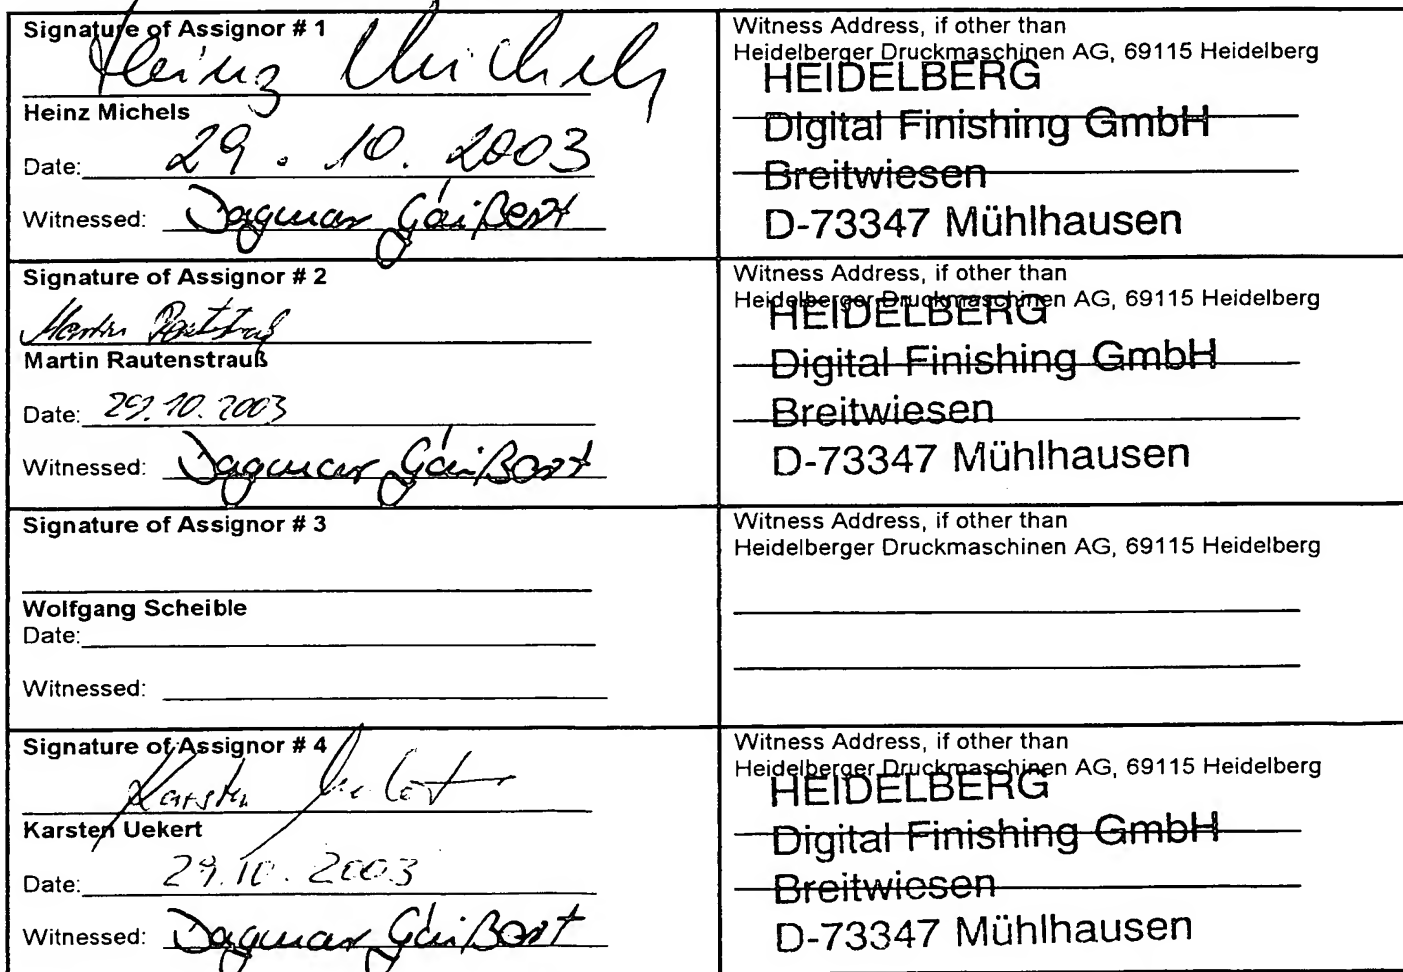 Signature of Assignor # 1
Heinz Michels
Heinz Michels
Date: 29. 10. 2003
Witnessed: Dagmar Gaißert
Witness Address, if other than
Heidelberger Druckmaschinen AG, 69115 Heidelberg
HEIDELBERG
Digital Finishing GmbH
Breitwiesen
D-73347 Mühlhausen
Signature of Assignor # 2
Martin
Martin Rautenstrauß
Date: 29.10.2003
Witnessed: Dagmar Gaißert
Witness Address, if other than
Heidelberger Druckmaschinen AG, 69115 Heidelberg
HEIDELBERG
Digital Finishing GmbH
Breitwiesen
D-73347 Mühlhausen
Signature of Assignor # 3
Wolfgang Scheible
Date:
Witnessed:
Witness Address, if other than
Heidelberger Druckmaschinen AG, 69115 Heidelberg
Signature of Assignor # 4
Karsten Uekert
Karsten Uekert
Date: 29.10.2003
Witnessed: Dagmar Gaißert
Witness Address, if other than
Heidelberger Druckmaschinen AG, 69115 Heidelberg
HEIDELBERG
Digital Finishing GmbH
Breitwiesen
D-73347 Mühlhausen